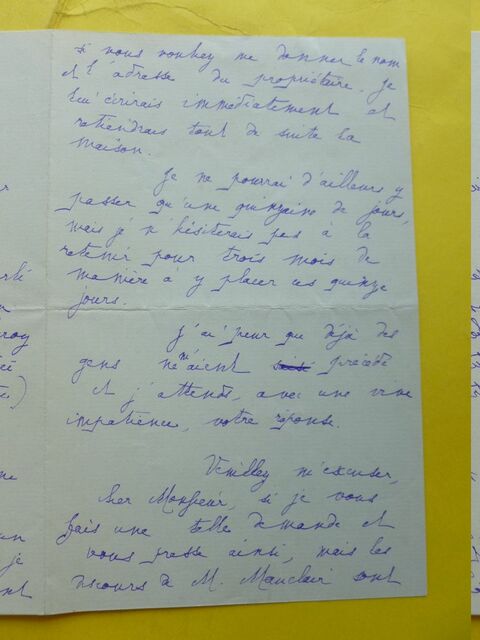 si vous voulez me donner le nom
et l'adresse du propriétaire, je
lui écrirais immédiatement et
retiendrais tout de suite la
maison.
Je ne pourrai d'ailleurs y
passer qu'une quinzaine de jours,
mais je n'hésiterais pas à la
retenir pour trois mois de
manière à y placer ces quinze
jours.
J'ai peur que déjà des
gens ne m'aient précédé
et j'attends, avec une vive
impatience, votre réponse.
Veuillez m'excuser,
cher Monsieur, si je vous
fais une telle demande et
vous presse ainsi, mais les
discours de M. Mauclair sont